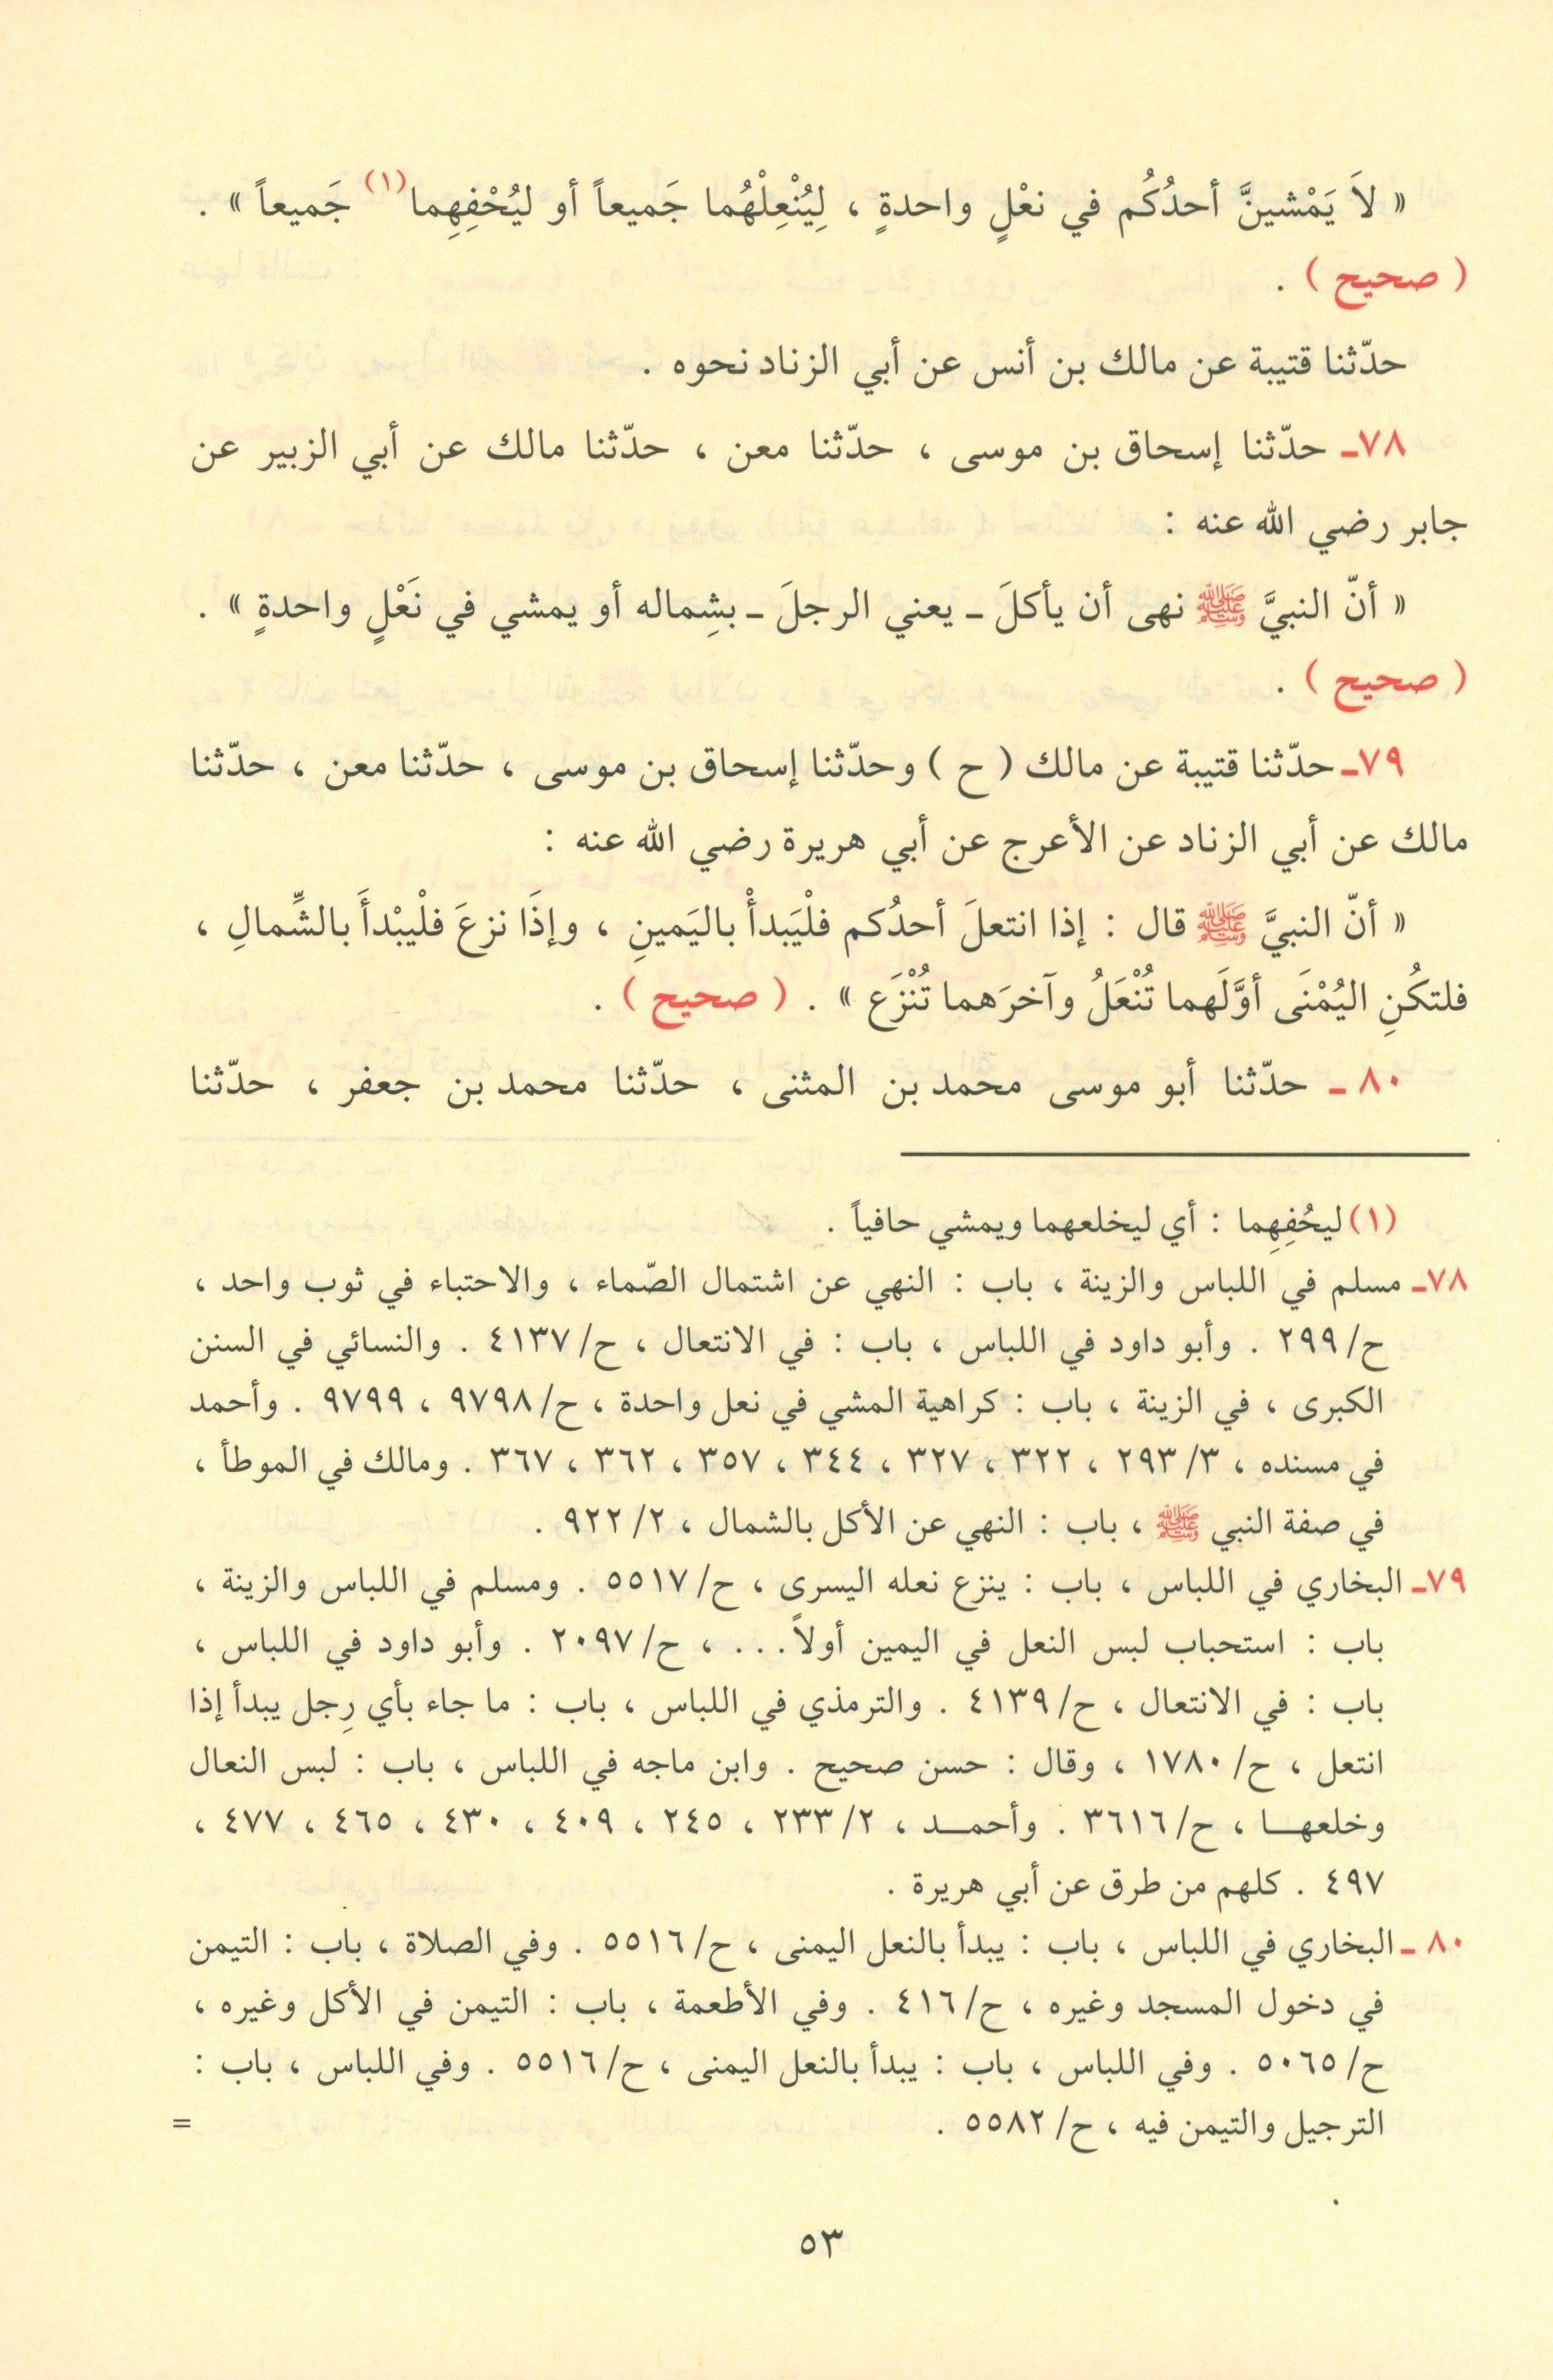 « لاَ يَمْشينَّ أحدُكُم في نعْلٍ واحدةٍ ، لِيُنْعِلْهُما جَميعاً أو ليُحْفِهِما(١) جَميعاً » .
( صحيح ) .
حدّثنا قتيبة عن مالك بن أنس عن أبي الزناد نحوه .
٧٨ـ حدّثنا إسحاق بن موسى ، حدّثنا معن ، حدّثنا مالك عن أبي الزبير عن
جابر رضي الله عنه :
« أنّ النبيَّ ﷺ نهى أن يأكلَ ـ يعني الرجلَ ـ بشِماله أو يمشي في نَعْلٍ واحدةٍ » .
( صحيح ) .
٧٩ـ حدّثنا قتيبة عن مالك ( ح ) وحدّثنا إسحاق بن موسى ، حدّثنا معن ، حدّثنا
مالك عن أبي الزناد عن الأعرج عن أبي هريرة رضي الله عنه :
« أنّ النبيَّ ﷺ قال : إذا انتعلَ أحدُكم فلْيَبدأْ باليَمينِ ، وإذَا نزعَ فلْيبْدأَ بالشِّمالِ ،
فلتكُنِ اليُمْنَى أوَّلَهما تُنْعَلُ وآخرَهما تُنْزَع » . ( صحيح ) .
٨٠ ـ حدّثنا أبو موسى محمد بن المثنى ، حدّثنا محمد بن جعفر ، حدّثنا
(١) ليحُفِهِما : أي ليخلعهما ويمشي حافياً .
٧٨ـ مسلم في اللباس والزينة ، باب : النهي عن اشتمال الصّماء ، والاحتباء في ثوب واحد ،
ح/ ٢٩٩ . وأبو داود في اللباس ، باب : في الانتعال ، ح/ ٤١٣٧ . والنسائي في السنن
الكبرى ، في الزينة ، باب : كراهية المشي في نعل واحدة ، ح/ ٩٧٩٨ ، ٩٧٩٩ . وأحمد
في مسنده ، ٣/ ٢٩٣ ، ٣٢٢ ، ٣٢٧ ، ٣٤٤ ، ٣٥٧ ، ٣٦٢ ، ٣٦٧ . ومالك في الموطأ ،
في صفة النبي ﷺ ، باب : النهي عن الأكل بالشمال ، ٢/ ٩٢٢ .
٧٩ـ البخاري في اللباس ، باب : ينزع نعله اليسرى ، ح/ ٥٥١٧ . ومسلم في اللباس والزينة ،
باب : استحباب لبس النعل في اليمين أولاً . . . ، ح/ ٢٠٩٧ . وأبو داود في اللباس ،
باب : في الانتعال ، ح/ ٤١٣٩ . والترمذي في اللباس ، باب : ما جاء بأي رِجل يبدأ إذا
انتعل ، ح/ ١٧٨٠ ، وقال : حسن صحيح . وابن ماجه في اللباس ، باب : لبس النعال
وخلعهـا ، ح/ ٣٦١٦ . وأحمـد ، ٢/ ٢٣٣ ، ٢٤٥ ، ٤٠٩ ، ٤٣٠ ، ٤٦٥ ، ٤٧٧ ،
٤٩٧ . كلهم من طرق عن أبي هريرة .
٨٠ ـ البخاري في اللباس ، باب : يبدأ بالنعل اليمنى ، ح/ ٥٥١٦ . وفي الصلاة ، باب : التيمن
في دخول المسجد وغيره ، ح/ ٤١٦ . وفي الأطعمة ، باب : التيمن في الأكل وغيره ،
ح/ ٥٠٦٥ . وفي اللباس ، باب : يبدأ بالنعل اليمنى ، ح/ ٥٥١٦ . وفي اللباس ، باب :
الترجيل والتيمن فيه ، ح/ ٥٥٨٢ . =
٥٣